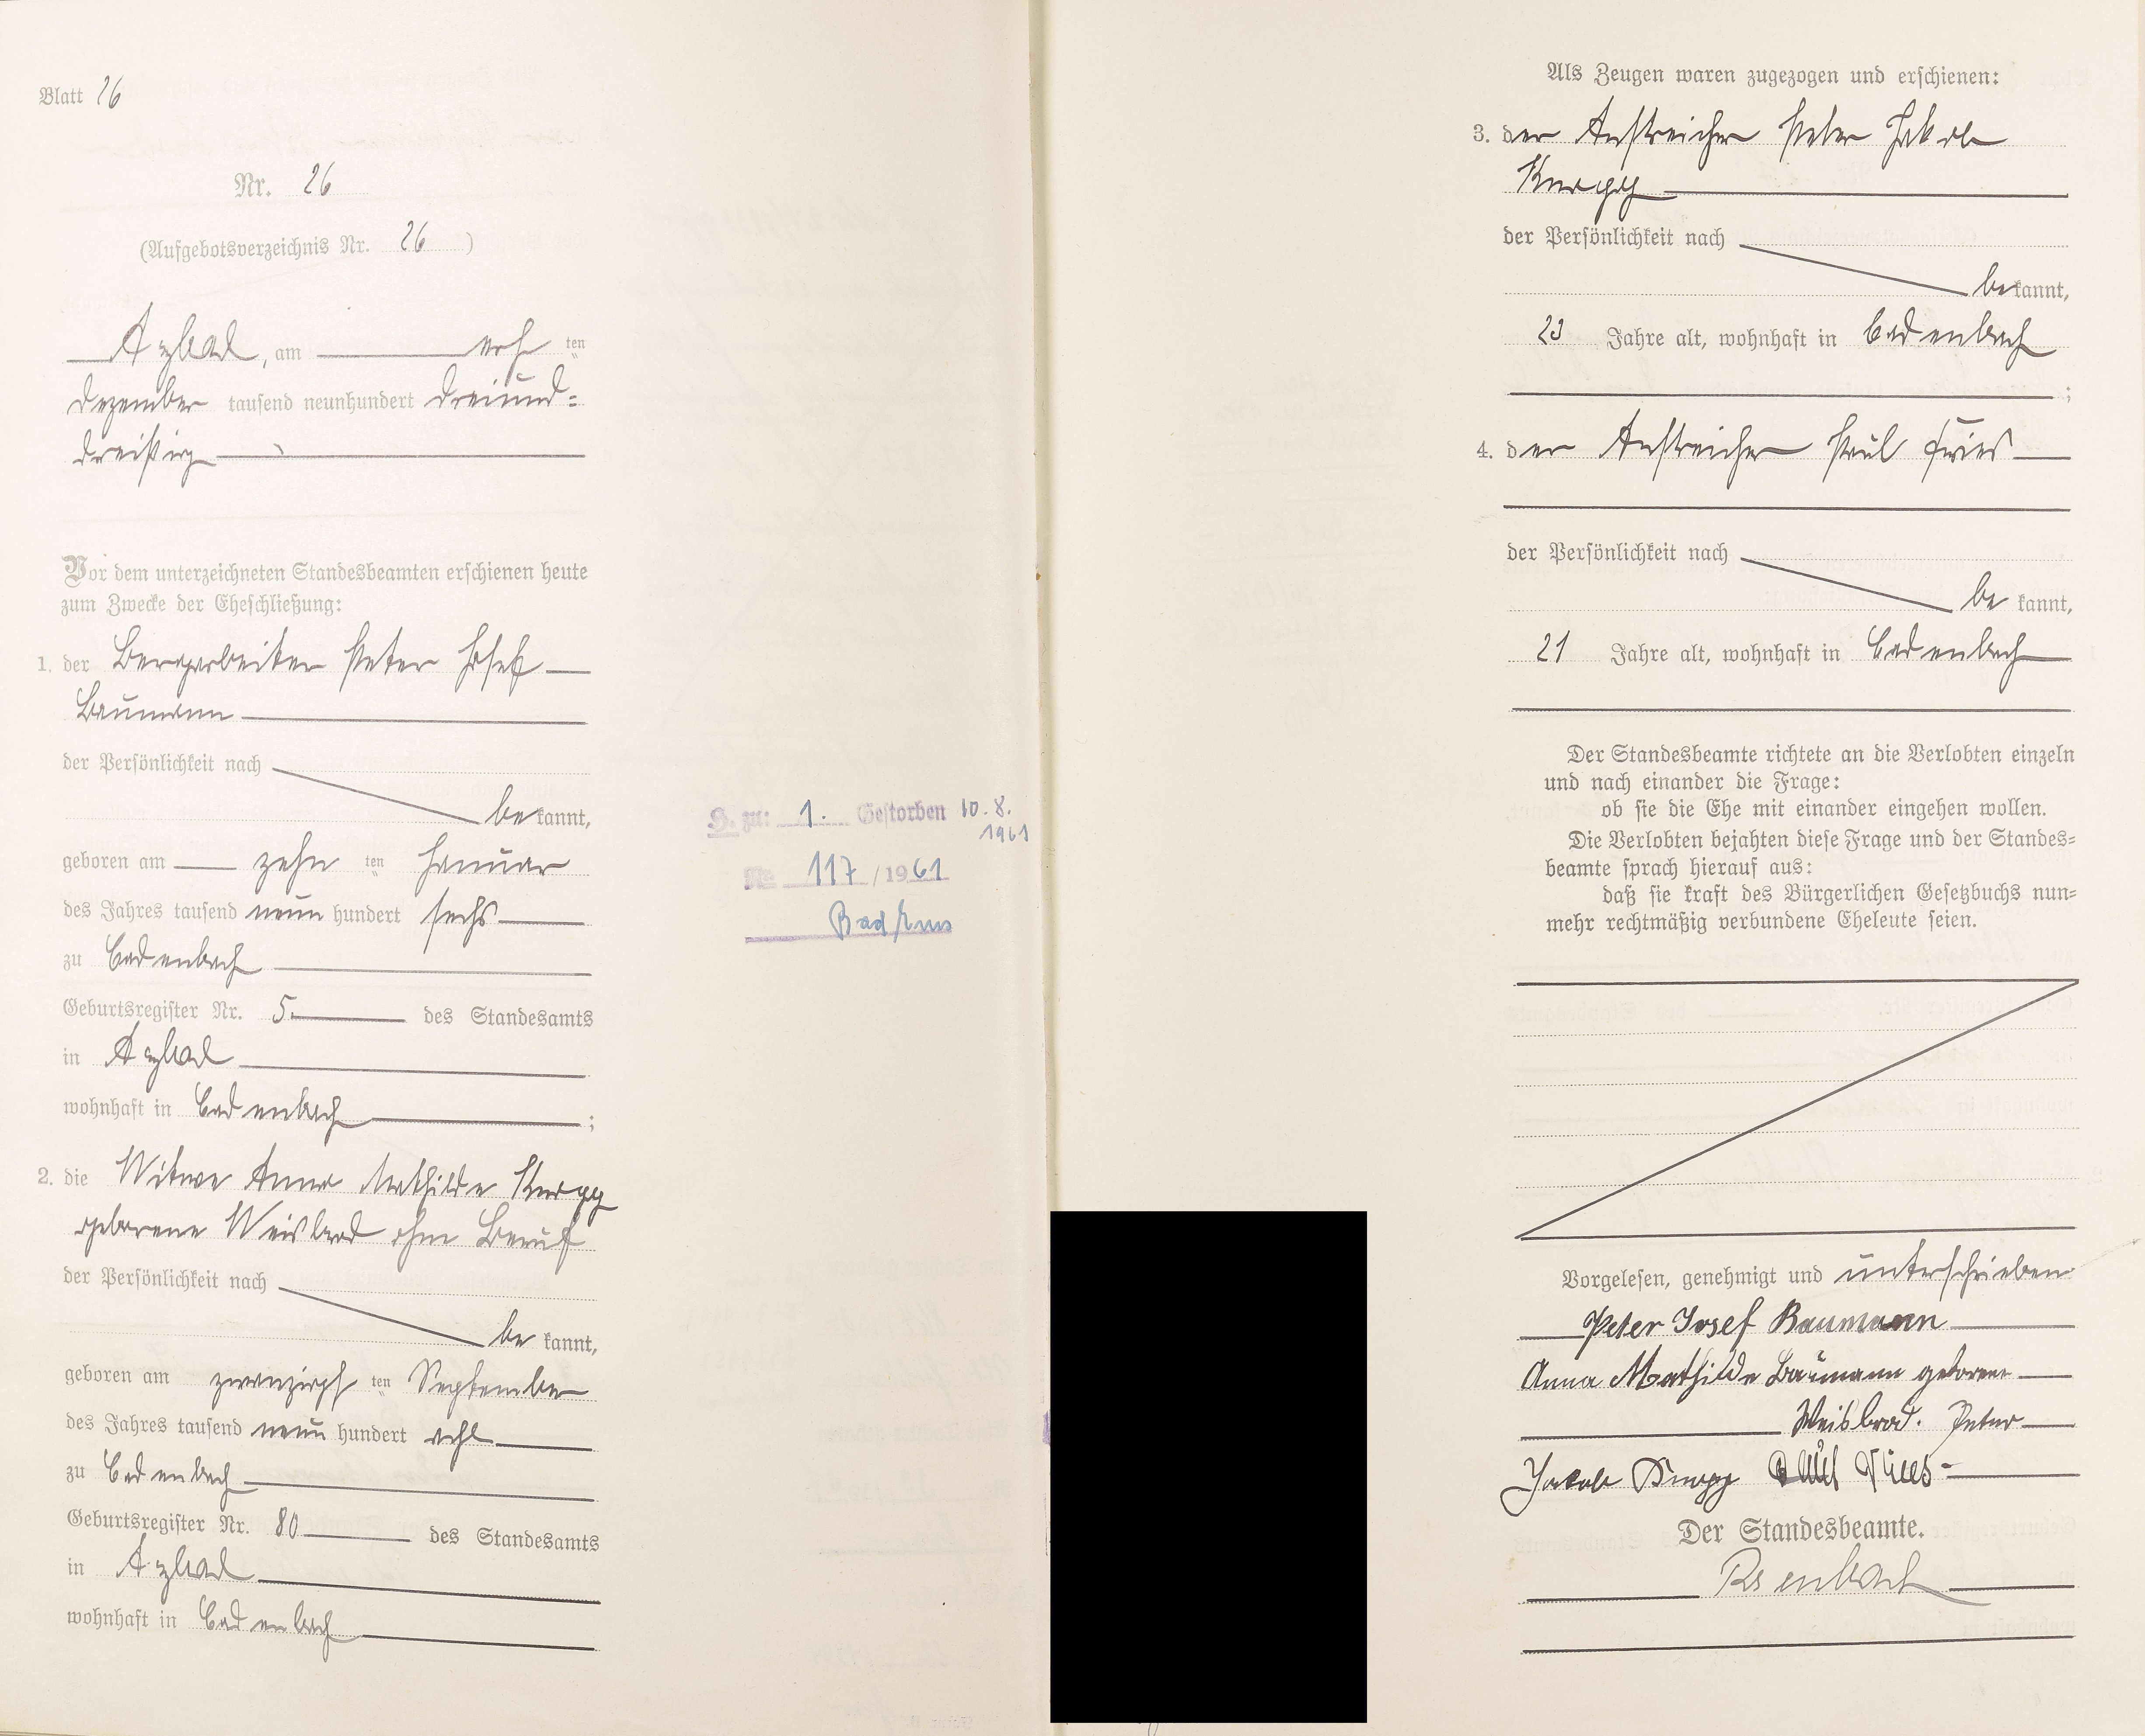 Blatt 26
Nr. 26
(Aufgebotsverzeichnis Nr. 26)
Arzbach, am ten
Dezember tausend neunhundert dreiund=
dreißig
Vor dem unterzeichneten Standesbeamten erschienen heute
zum Zwecke der Eheschließung:
1. der Bergarbeiter Peter Josef
Baumann
der Persönlichkeit nach
be kannt,
geboren am zehn ten Januar
des Jahres tausend neun hundert sechs
zu Cadenbach
Geburtsregister Nr. 5. des Standesamts
in Arzbach
wohnhaft in Cadenbach;
2. die Witwe Anna Mathilde Knopp
geborene Weisbrod ohne Beruf
der Persönlichkeit nach
be kannt,
geboren am zwanzigst ten September
des Jahres tausend neun hundert acht
zu Cadenbach
Geburtsregister Nr. 80 des Standesamts
in Arzbach
wohnhaft in Cadenbach
H. zu: 1. Gestorben 10.8.
1961
Nr. 117/1961
Bad Ems
Als Zeugen waren zugezogen und erschienen:
3. der Anstreicher Peter Jakob
Knopp
der Persönlichkeit nach
be kannt,
23 Jahre alt, wohnhaft in Cadenbach
;
4. der Anstreicher Paul Fries
der Persönlichkeit nach
be kannt,
21 Jahre alt, wohnhaft in Cadenbach
Der Standesbeamte richtete an die Verlobten einzeln
und nach einander die Frage:
ob sie die Ehe mit einander eingehen wollen.
Die Verlobten bejahten diese Frage und der Standes=
beamte sprach hierauf aus:
daß sie kraft des Bürgerlichen Gesetzbuchs nun=
mehr rechtmäßig verbundene Eheleute seien.
Vorgelesen, genehmigt und unterschrieben
Peter Josef Baumann
Anna Mathilde Baumann geborene
Weisbrod. Peter
Jakob Knopp Paul Fries
Der Standesbeamte.